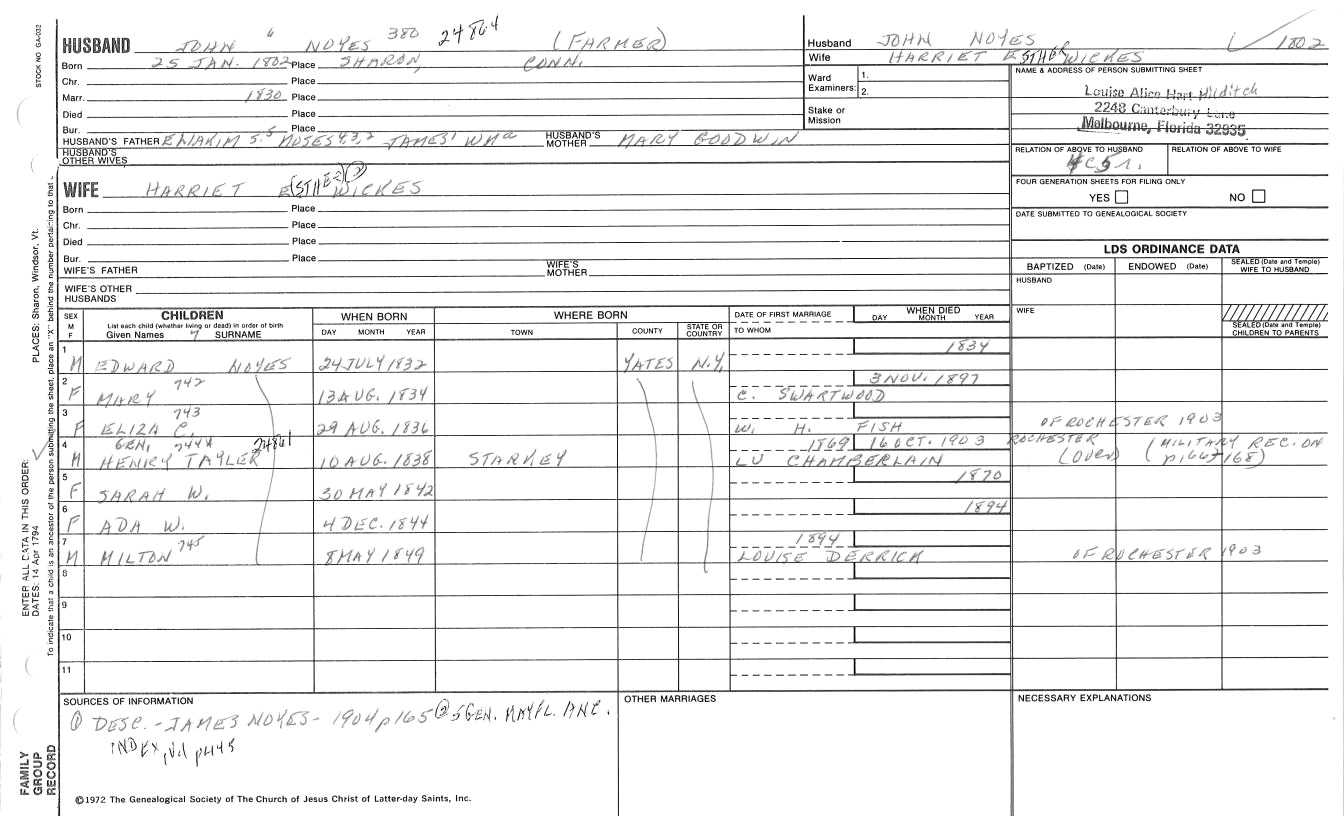 STOCK NO GA-032
HUSBAND JOHN 6 NOYES 380 24864 (FARMER)
Born 25 JAN. 1802 Place SHARON, CONN.
Chr. Place
Marr. 1830 Place
Died Place
Bur. Place
HUSBAND'S FATHER ELIAKIM MOSES 4,3,2 JAMES' WMa HUSBAND'S MOTHER MARY GOODWIN
HUSBAND'S OTHER WIVES
Husband JOHN NOYES 1802
Wife HARRIET ESTHER WICKES
Ward Examiners: 1.
2.
Stake or Mission
NAME & ADDRESS OF PERSON SUBMITTING SHEET
Louise Alice Hart Hilditch
2248 Canterbury Lane
Melbourne, Florida 32935
RELATION OF ABOVE TO HUSBAND RELATION OF ABOVE TO WIFE
FOUR GENERATION SHEETS FOR FILING ONLY
YES NO
DATE SUBMITTED TO GENEALOGICAL SOCIETY
WIFE HARRIET E(STHER) (2) WICKES
Born Place
Chr. Place
Died Place
Bur. Place
WIFE'S FATHER WIFE'S MOTHER
WIFE'S OTHER HUSBANDS
LDS ORDINANCE DATA
BAPTIZED (Date) ENDOWED (Date) SEALED (Date and Temple) WIFE TO HUSBAND
HUSBAND
WIFE
SEALED (Date and Temple) CHILDREN TO PARENTS
SEX M F CHILDREN List each child (whether living or dead) in order of birth Given Names 7 SURNAME WHEN BORN DAY MONTH YEAR WHERE BORN TOWN COUNTY STATE OR COUNTRY DATE OF FIRST MARRIAGE TO WHOM WHEN DIED DAY MONTH YEAR
1 M EDWARD NOYES 24 JULY 1832 YATES N.Y. 1834
2 F MARY 742 13 AUG. 1834 C. SWARTWOOD 3 NOV. 1897
3 F ELIZA C. 743 29 AUG. 1836 W. H. FISH OF ROCHESTER 1903
4 M GEN. 744X 24861 HENRY TAYLER 10 AUG. 1838 STARKEY 1869 LU CHAMBERLAIN 16 OCT. 1903 ROCHESTER (OVER) (MILITARY REC. ON p.166+168)
5 F SARAH W. 30 MAY 1842 1870
6 F ADA W. 4 DEC. 1844 1894
7 M MILTON 745 8 MAY 1849 1894 LOUISE DERRICK OF ROCHESTER 1903
8
9
10
11
SOURCES OF INFORMATION
① DESC. - JAMES NOYES - 1904 p165 ② 5 GEN. MAYFL. ANC.
INDEX, Vol p445
OTHER MARRIAGES
NECESSARY EXPLANATIONS
©1972 The Genealogical Society of The Church of Jesus Christ of Latter-day Saints, Inc.
FAMILY GROUP RECORD
ENTER ALL DATA IN THIS ORDER:
DATES: 14 Apr 1794
PLACES: Sharon, Windsor, Vt.
To indicate that a child is an ancestor of the person submitting the sheet, place an "X" behind the number pertaining to that